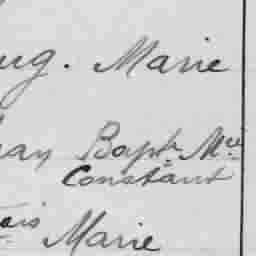 ug. Marie
an Bapt. Mie
Constant
ois Marie